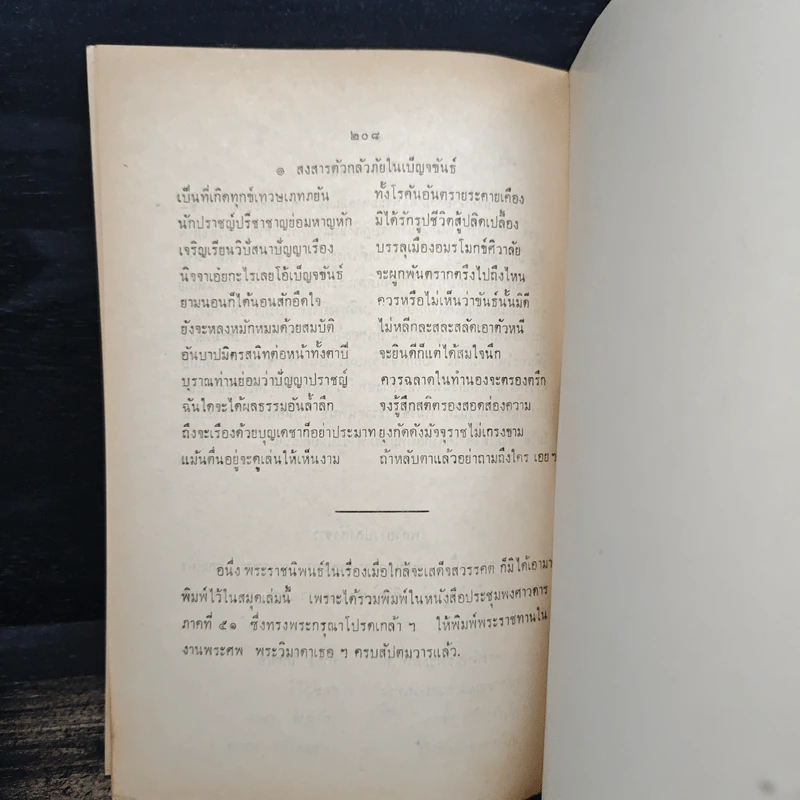 ๒๐๘
๏ สงสารตัวกลัวภัยในเบ็ญจขันธ์
เป็นที่เกิดทุกข์เทวษเภทภยัน ทั้งโรคันอันตรายระคายเคือง
นักปราชญ์ปรีชาชาญย่อมหาญหัก มิได้รักรูปชีวิตสู้ปลิดเปลื้อง
เจริญเรียนวิปัสนาปัญญาเรือง บรรลุเมืองอมรโมกข์ศิวาลัย
นิจจาเอ๋ยกะไรเลยโอ้เบ็ญจขันธ์ จะผูกพันตรากตรึงไปถึงไหน
ยามนอนก็ได้นอนสักอึดใจ ควรหรือไม่เห็นว่าขันธ์นั้นมิดี
ยังจะหลงหมักหมมด้วยสมบัติ ไม่หลีกละสละสลัดเอาตัวหนี
อันบาปมิตรสนิทต่อหน้าทั้งตาปี จะยินดีก็แต่ได้สมใจนึก
บุราณท่านย่อมว่าปัญญาปราชญ์ ควรฉลาดในทำนองจะตรองตรึก
ฉันใดจะได้ผลธรรมอันล้ำลึก จงรู้สึกสติตรองสอดส่องความ
ถึงจะเรืองด้วยบุญเดชาก็อย่าประมาท ยุงกัดดังมัจจุราชไม่เกรงขาม
แม้นตื่นอยู่จะดูเล่นให้เห็นงาม ถ้าหลับตาแล้วอย่าถามถึงใคร เอย ฯ
อนึ่ง พระราชนิพนธ์ในเรื่องเมื่อใกล้จะเสด็จสวรรคต ก็มิได้เอามา
พิมพ์ไว้ในสมุดเล่มนี้ เพราะได้รวมพิมพ์ในหนังสือประชุมพงศาวดาร
ภาคที่ ๕๑ ซึ่งทรงพระกรุณาโปรดเกล้า ฯ ให้พิมพ์พระราชทานใน
งานพระศพ พระวิมาดาเธอ ฯ ครบสัปตมวารแล้ว.